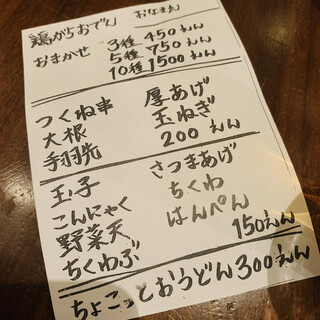 鶏がらおでん おなまえ
おまかせ 3種 450えん
5種 750えん
10種 1500えん
つくね串 厚あげ
大根 玉ねぎ
手羽先 200えん
玉子 さつまあげ
こんにゃく ちくわ
野菜天 はんぺん
ちくわぶ 150えん
ちょこっとおうどん 300えん